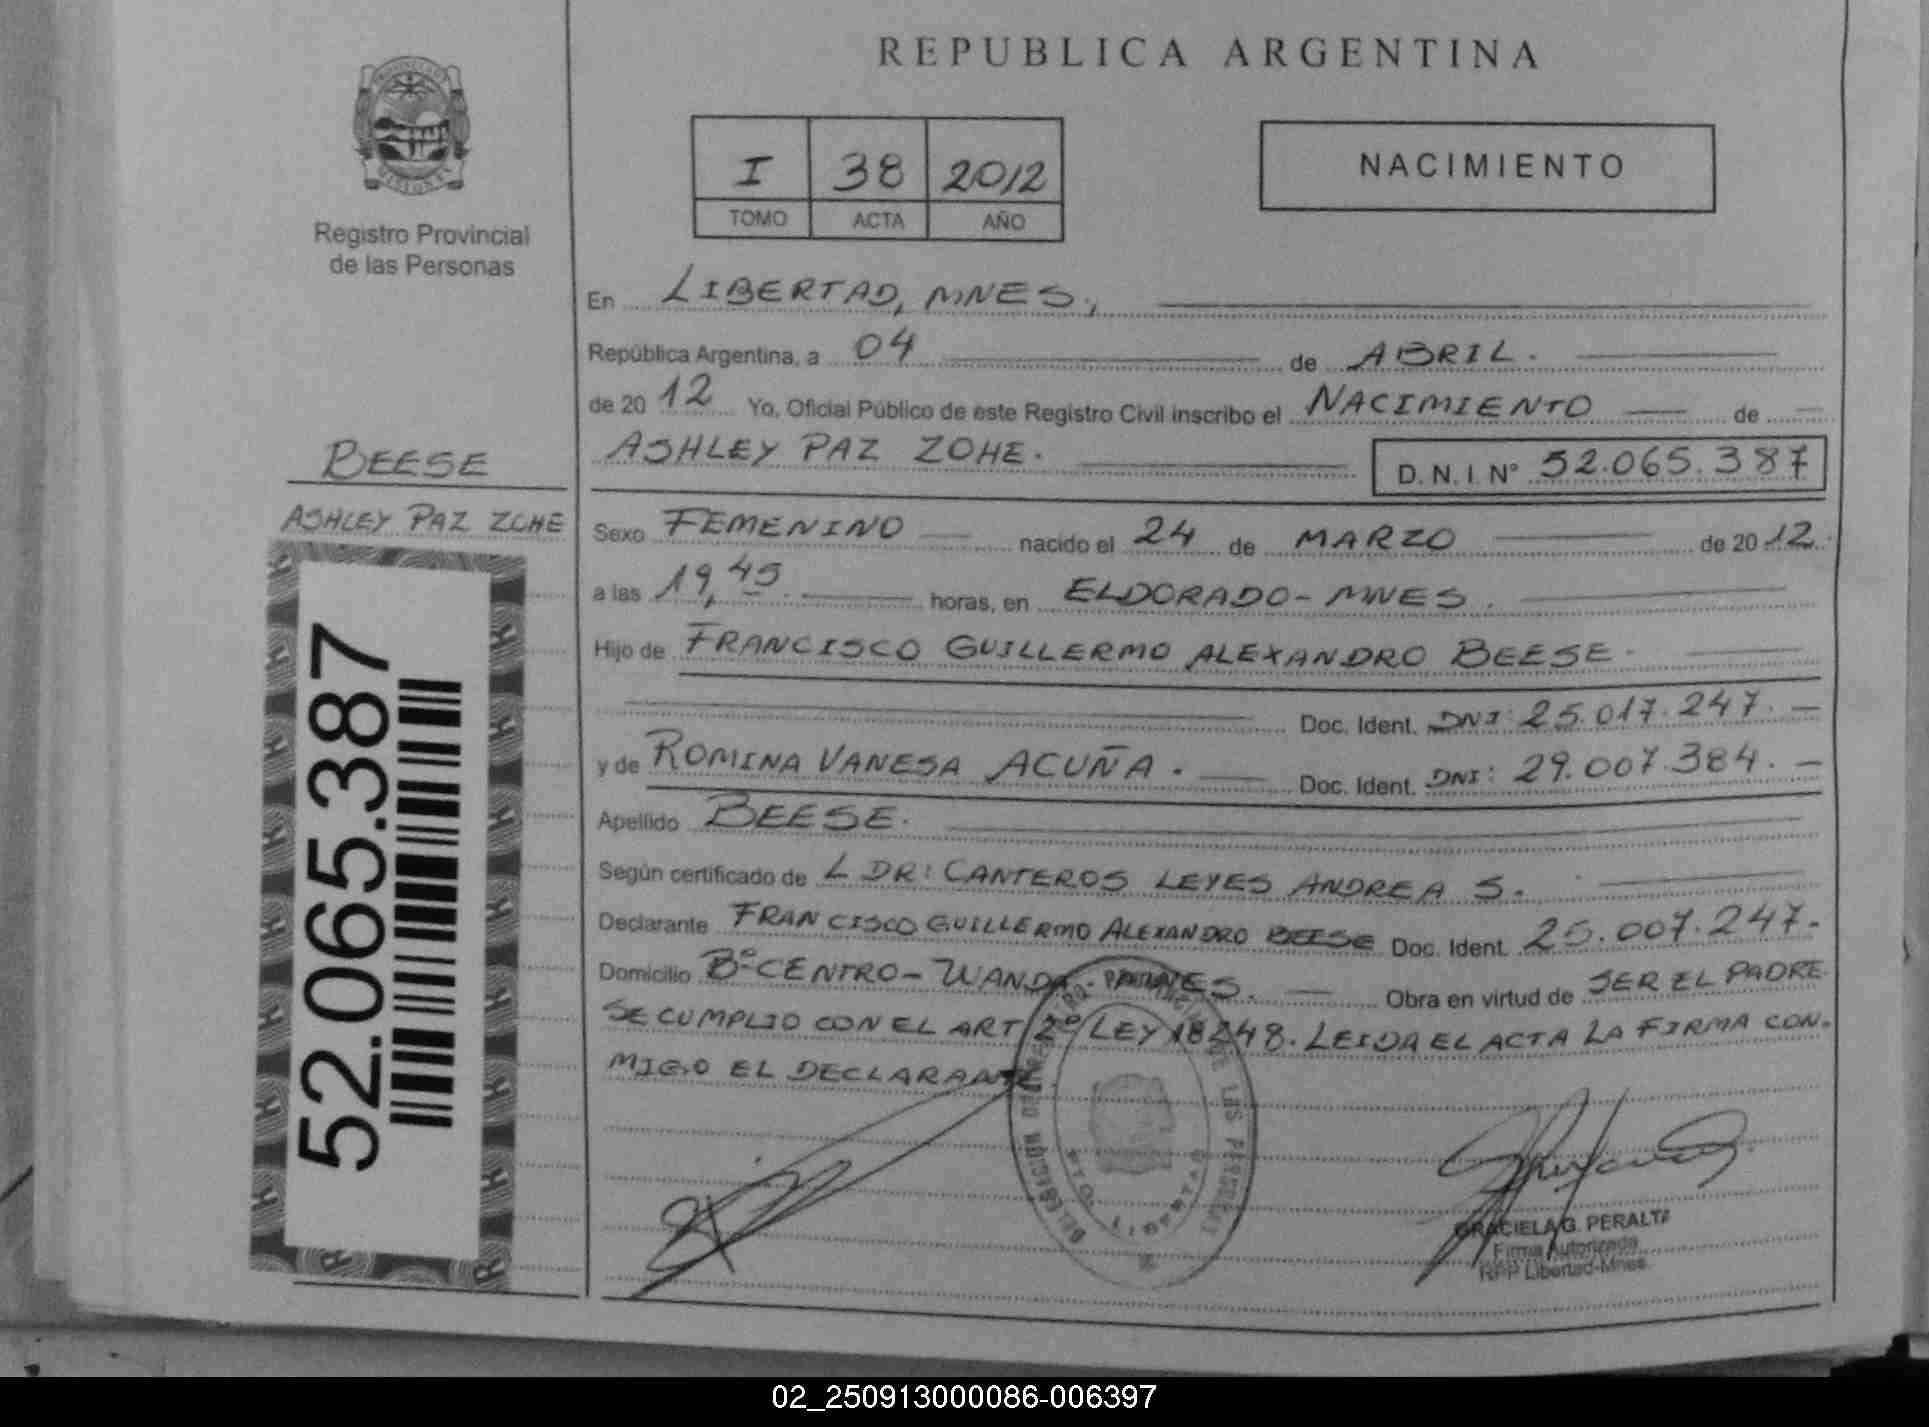 REPUBLICA ARGENTINA
PROVINCIA DE MISIONES
Registro Provincial
de las Personas
I 38 2012
TOMO ACTA AÑO
NACIMIENTO
En LIBERTAD, MNES.,
República Argentina, a 04 de ABRIL.
de 2012 Yo, Oficial Público de este Registro Civil inscribo el NACIMIENTO de
ASHLEY PAZ ZOHE. D.N.I. N° 52.065.387
BEESE
ASHLEY PAZ ZOHE
52.065.387
Sexo FEMENINO nacido el 24 de MARZO de 2012.
a las 19,45 horas, en ELDORADO - MNES.
Hijo de FRANCISCO GUILLERMO ALEXANDRO BEESE.
Doc. Ident. DNI: 25.017.247.
y de ROMINA VANESA ACUÑA. Doc. Ident. DNI: 29.007.384.
Apellido BEESE.
Según certificado de L DR: CANTEROS LEYES ANDREA S.
Declarante FRANCISCO GUILLERMO ALEXANDRO BEESE Doc. Ident. 25.007.247.
Domicilio B° CENTRO - WANDA - MNES. Obra en virtud de SER EL PADRE.
SE CUMPLIO CON EL ART 2° LEY 18248. LEIDA EL ACTA LA FIRMA CON-
MIGO EL DECLARANTE.
DE LAS PERSONAS
LIBERTAD
GRACIELA G. PERALTA
Firma Autorizada
RPP Libertad-Mnes.
02_250913000086-006397